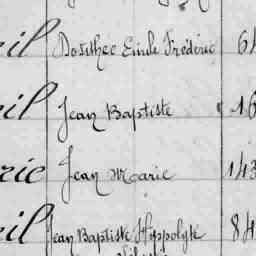 eil Dosithee Emile Frédéric 64
eil Jean Baptiste 16
rie Jean Marie 143
eil Jean Baptiste Hippolyte 84